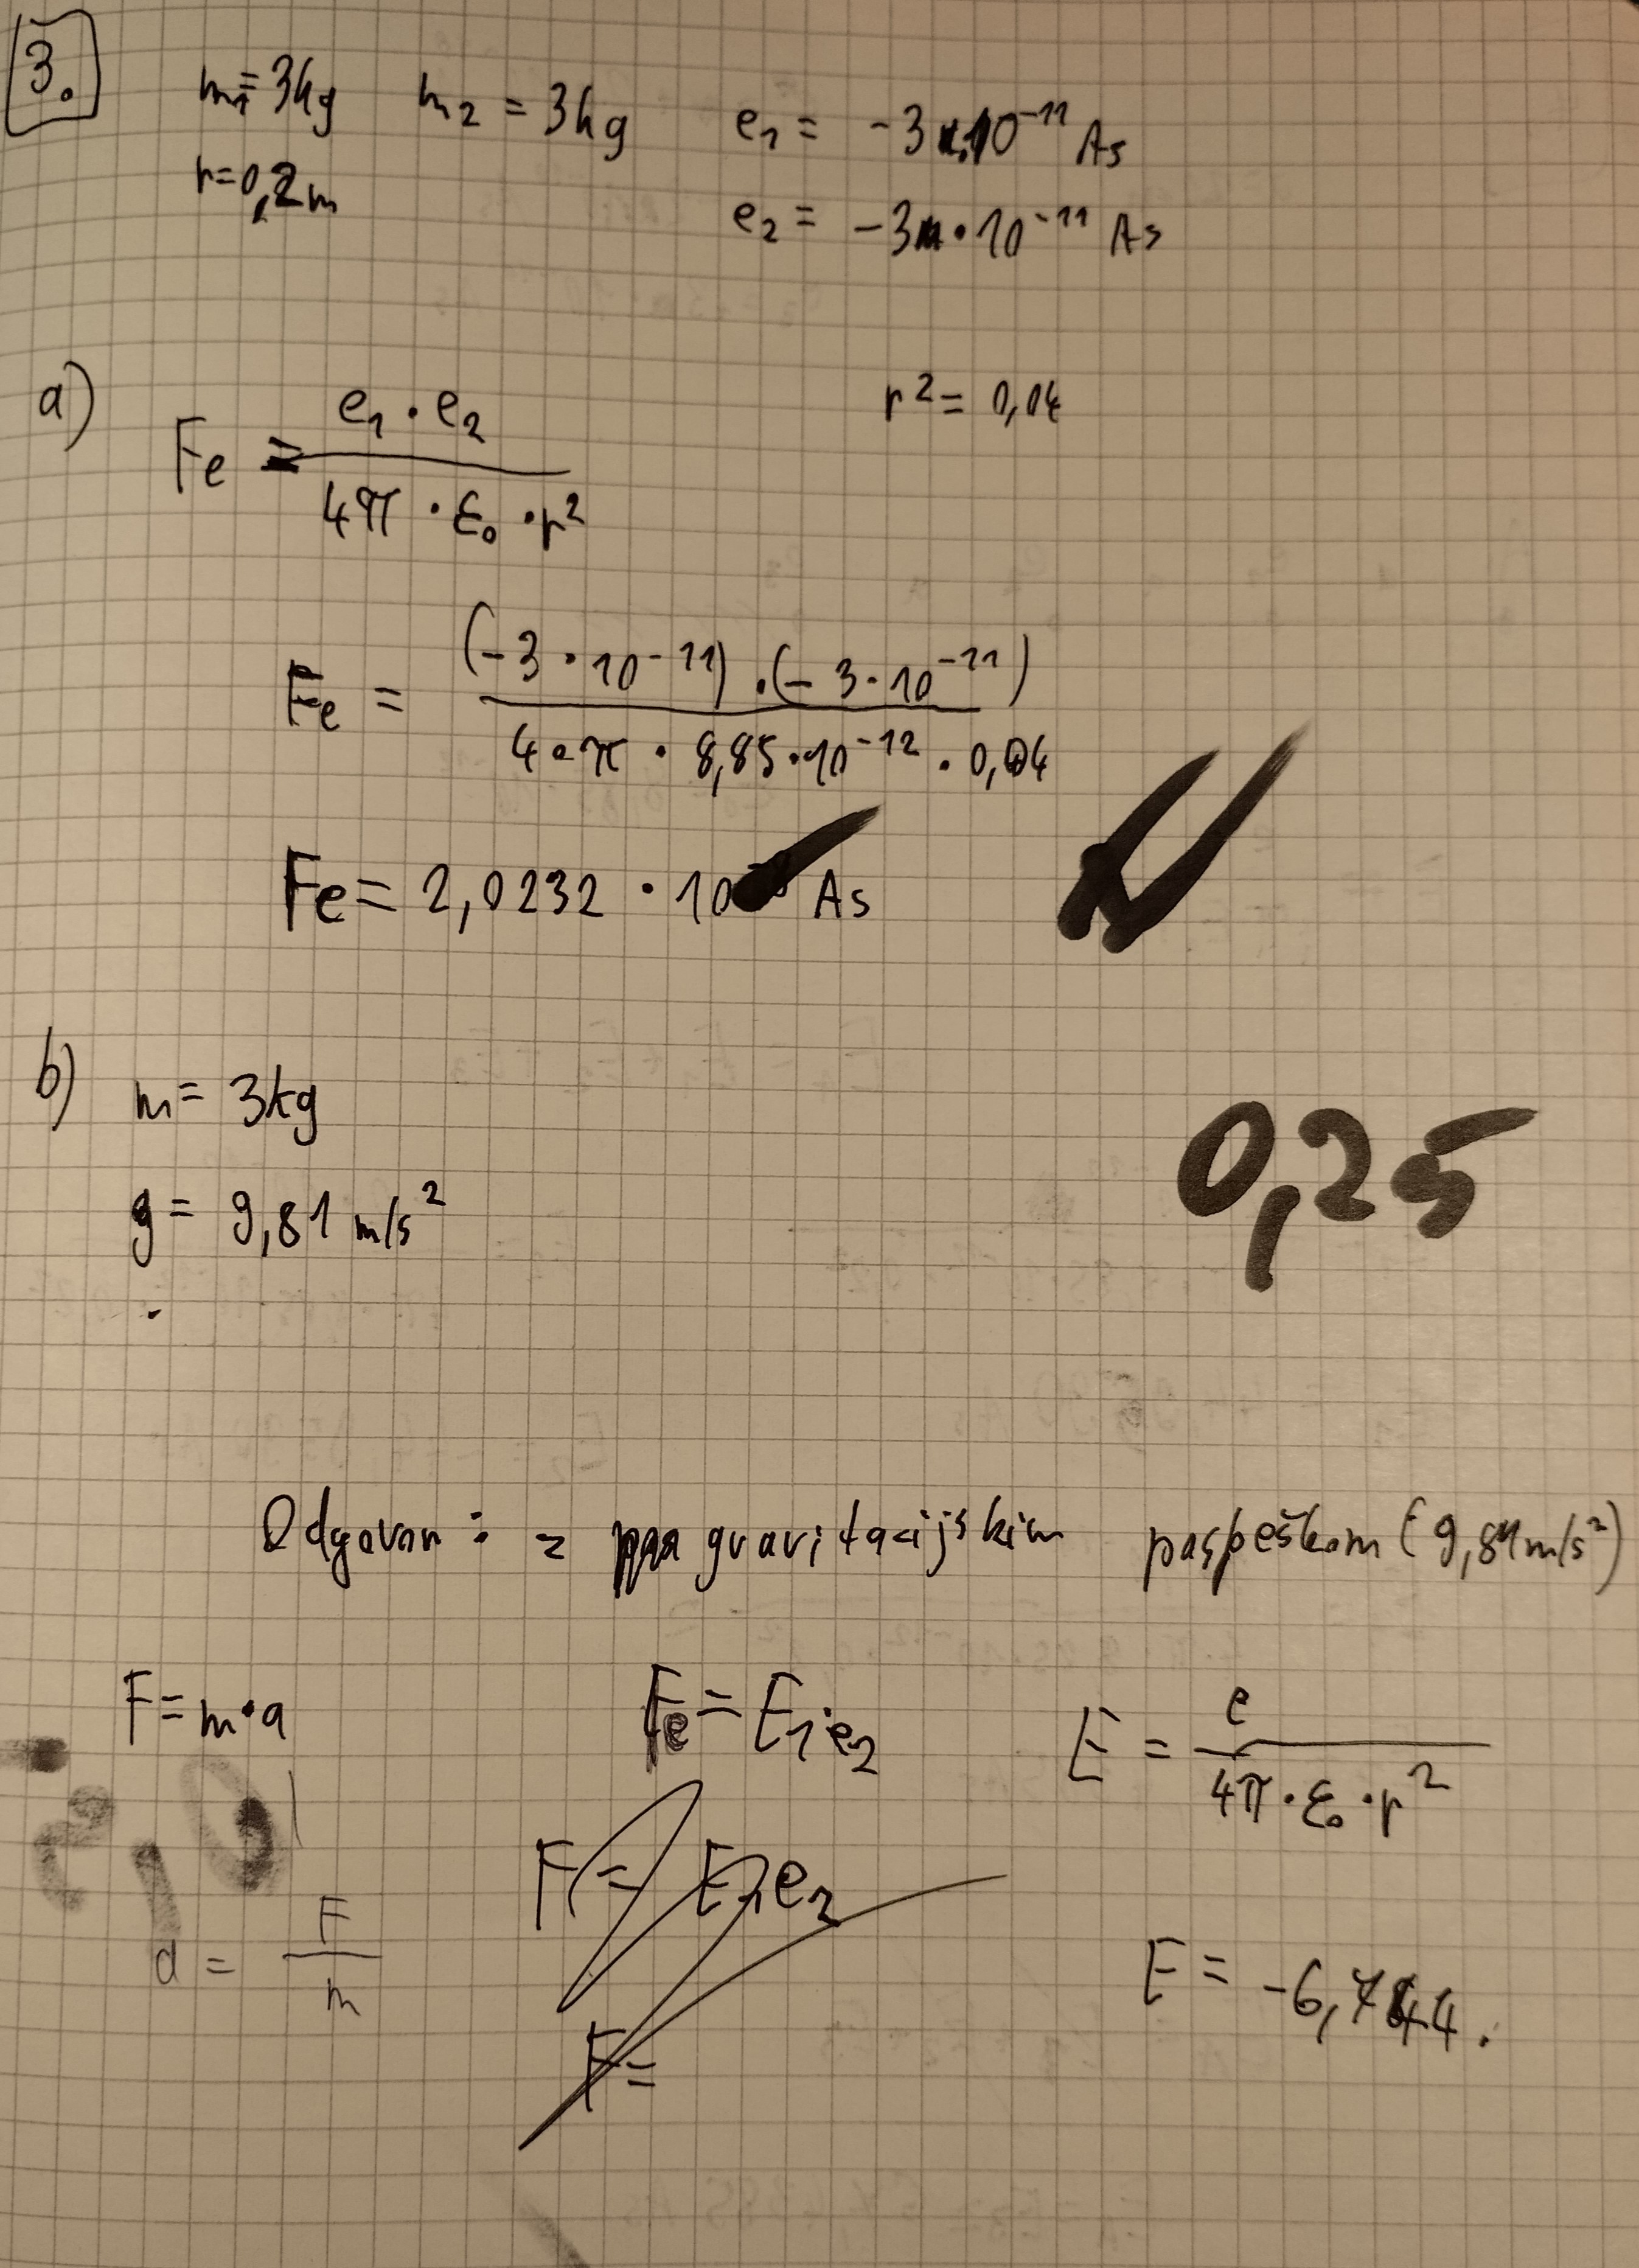 3.
m₁=3kg m₂ = 3kg e₁ = -3 · 10⁻¹¹ As
r=0,2m
e₂ = -3 · 10⁻¹¹ As
a)
r² = 0,04
Fe = e₁ · e₂ / 4π · ε₀ · r²
Fe = (-3 · 10⁻¹¹) · (-3 · 10⁻¹¹) / 4 · π · 8,85 · 10⁻¹² · 0,04
Fe = 2,0232 · 10 As
b) m = 3kg
0,25
g = 9,81 m/s²
Odgovor: z gravitacijskim pospeškom (9,81 m/s²)
F = m · a Fe = E₁ · e₂ E = e / 4π · ε₀ · r²
F = E₁e₂
a = F / m
E = -6,744.
F =